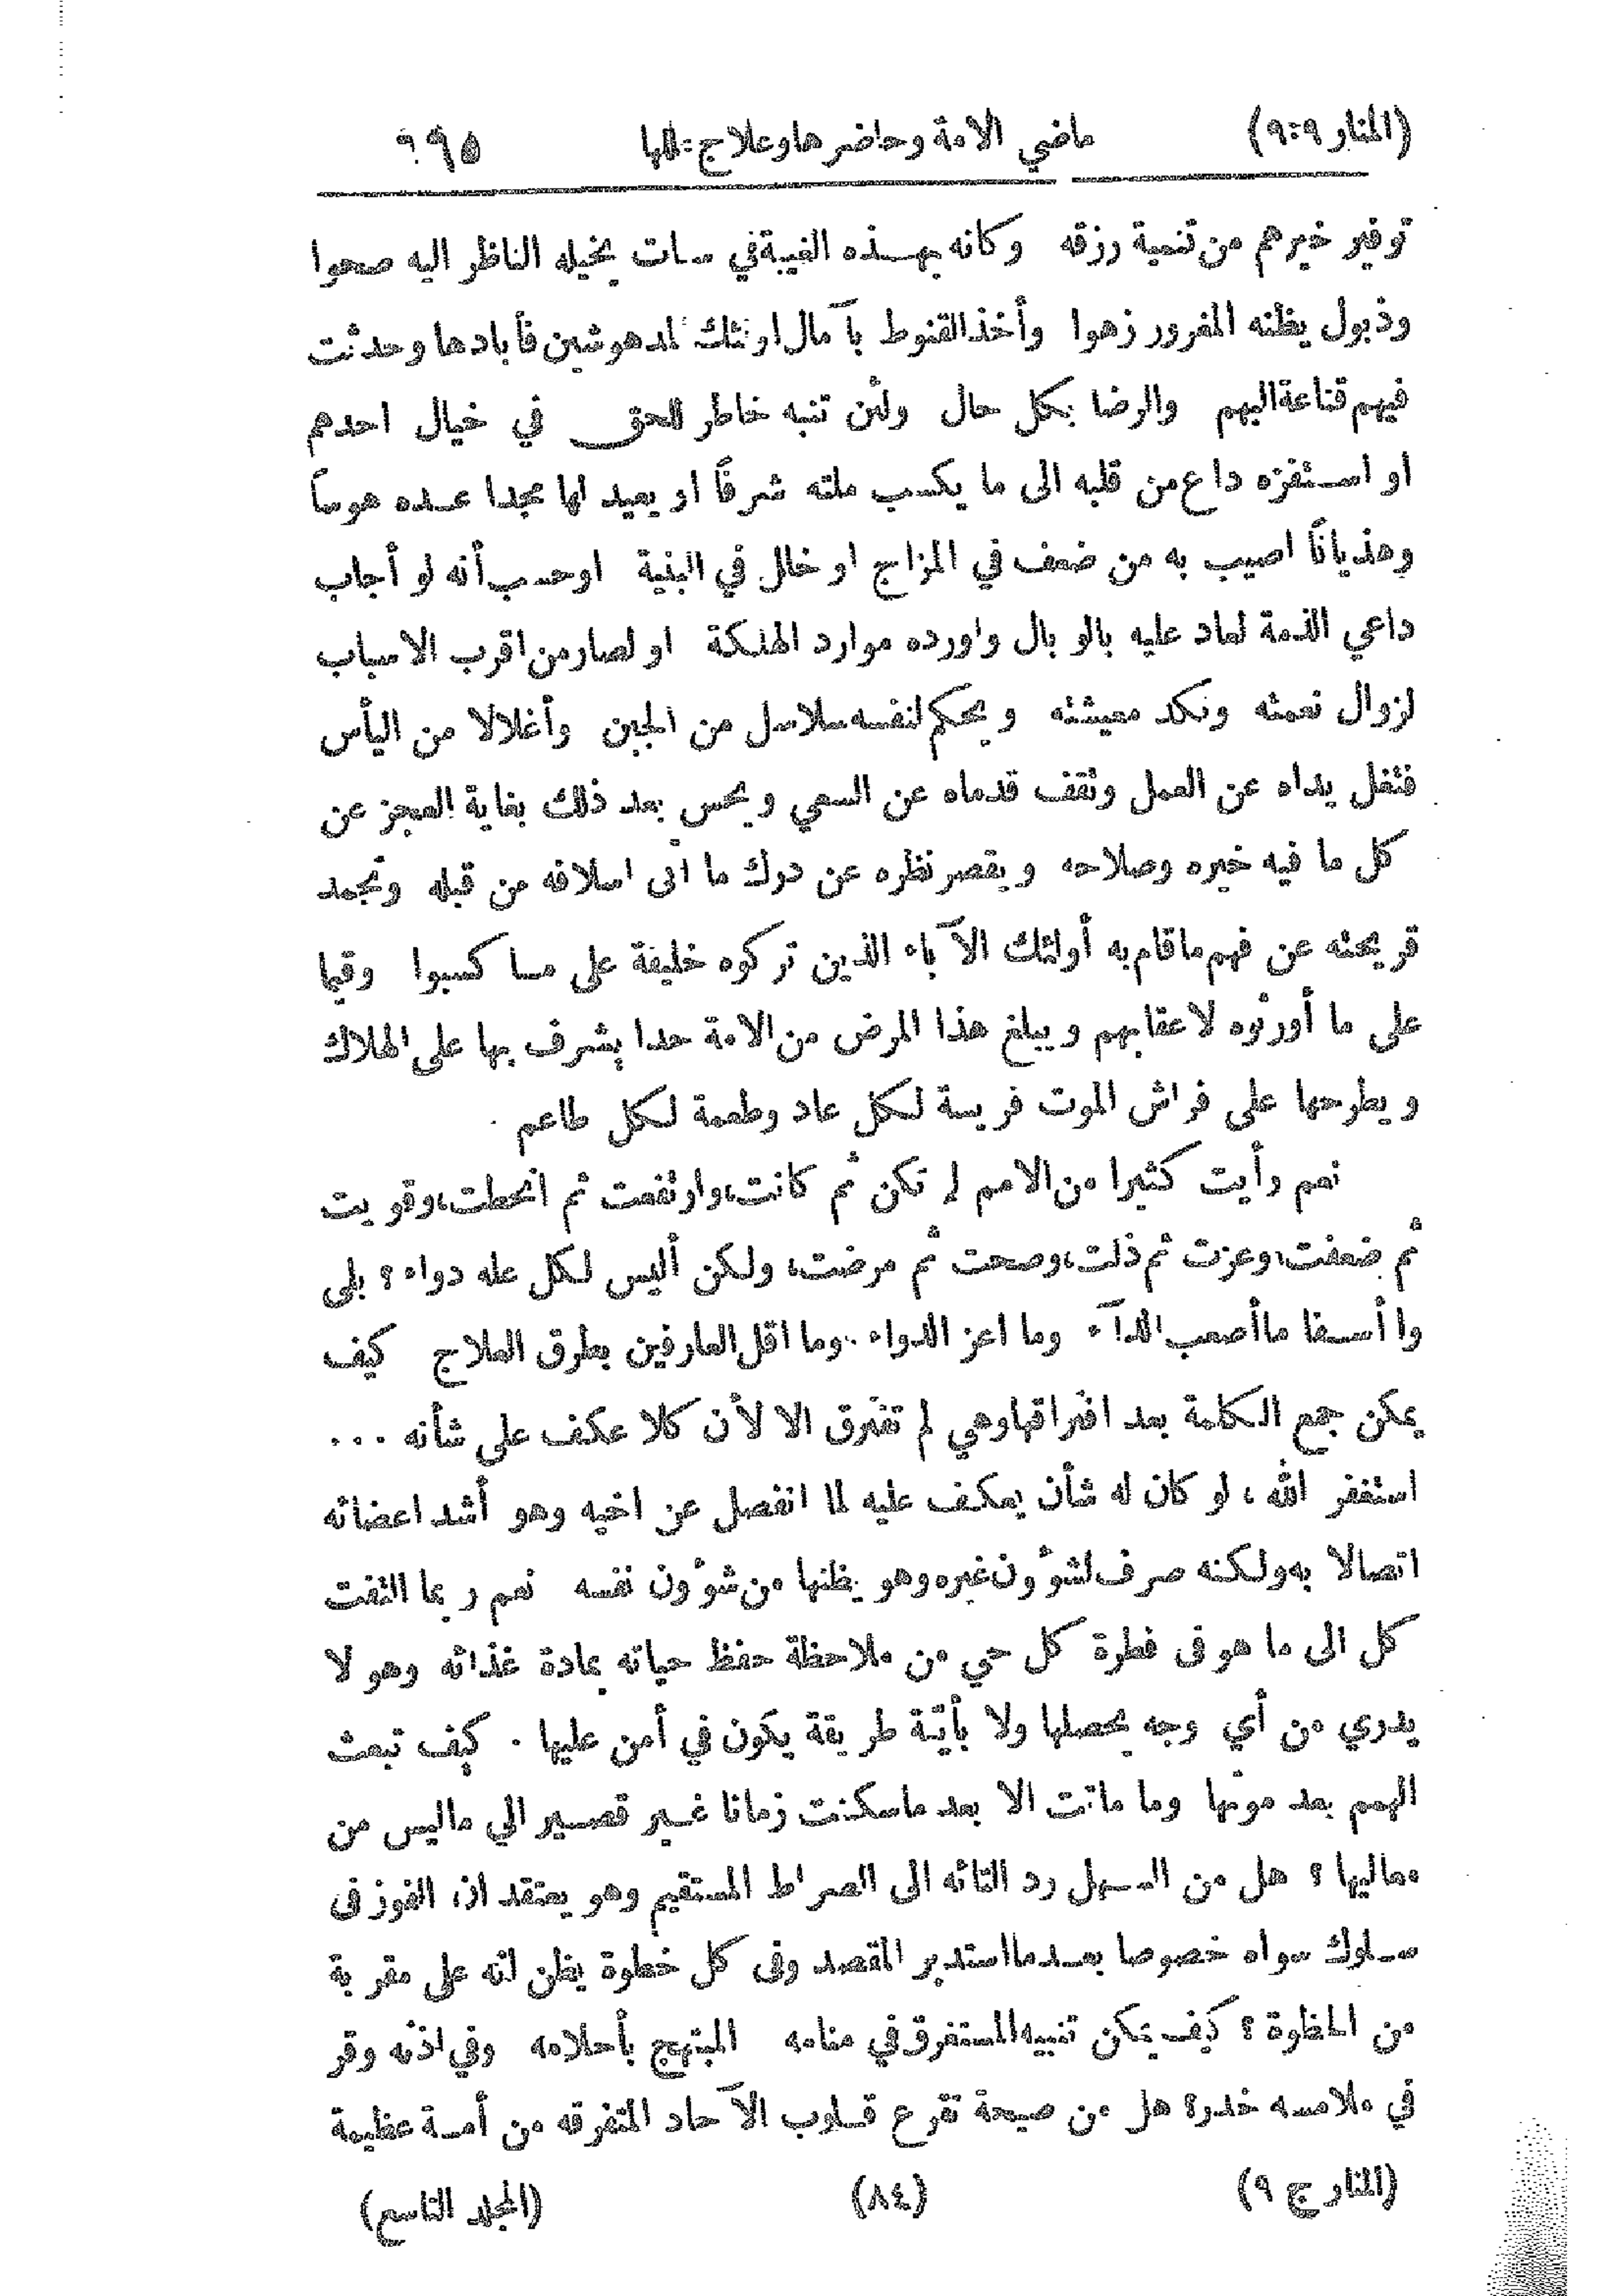 (المنار ٩:٩) ماضي الامة وحاضرها وعلاج عللها
توفير خيرهم من تنمية رزقه وكانه بهذه الغيبة في سبات يخيله الناظر اليه صحوا
وذبول يظنه المغرور زهوا وأخذ القنوط بآمال اولئك المدهوشين فأبادها وحدثت
فيهم قناعة البهم والرضا بكل حال ولئن تنبه خاطر للحق في خيال احدهم
او استفزه داع من قلبه الى ما يكسب ملته شرفاً او يعيد لها مجدا عده هوساً
وهذياناً اصيب به من ضعف في المزاج او خلل في البنية او حسب أنه لو أجاب
داعي الذمة لعاد عليه بالوبال واورده موارد الهلكة او لصار من اقرب الاسباب
لزوال نعمته ونكد معيشته ويحكم لنفسه سلاسل من الجبن وأغلالا من اليأس
فتغل يداه عن العمل وتقف قدماه عن السعي ويحس بعد ذلك بغاية العجز عن
كل ما فيه خيره وصلاحه ويقصر نظره عن درك ما اتى اسلافه من قبله وتجمد
قريحته عن فهم ما قام به أولئك الآباء الذين تركوه خليفة على ما كسبوا وقيما
على ما أورثوه لاعقابهم ويبلغ هذا المرض من الامة حدا يشرف بها على الهلاك
ويطرحها على فراش الموت فريسة لكل عاد وطعمة لكل طاعم .
نعم رأيت كثيرا من الامم لم تكن ثم كانت، وارتفعت ثم انحطت، وقويت
ثم ضعفت، وعزت ثم ذلت، وصحت ثم مرضت، ولكن أليس لكل عله دواء؟ بلى
وا أسفا ما أصعب الدآء وما اعز الدواء . وما اقل العارفين بطرق العلاج كيف
يمكن جمع الكلمة بعد افتراقها وهي لم تفترق الا لأن كلا عكف على شأنه ...
استغفر الله ، لو كان له شأن يعكف عليه لما انفصل عن اخيه وهو أشد اعضائه
اتصالا به ولكنه صرف لشؤون غيره وهو يظنها من شؤون نفسه نعم ربما التفت
كل الى ما هو فى فطرة كل حي من ملاحظة حفظ حياته بمادة غذائه وهو لا
يدري من أي وجه يحصلها ولا بأيّة طريقة يكون في أمن عليها . كيف تبعث
الهمم بعد موتها وما ماتت الا بعد ما سكنت زمانا غير قصير الي ما ليس من
معاليها ؟ هل من السهل رد التائه الى الصراط المستقيم وهو يعتقد ان الفوز فى
سلوك سواه خصوصا بعد ما استدبر المقصد وفى كل خطوة يظن انه على مقربة
من الحظوة ؟ كيف يمكن تنبيه المستغرق في منامه المبتهج بأحلامه وفي اذنه وقر
في ملامسه خدر؟ هل من صيحة تقرع قلوب الآحاد المتفرقه من أمة عظيمة
(المنار ج ٩) (٨٤) (المجلد التاسع)